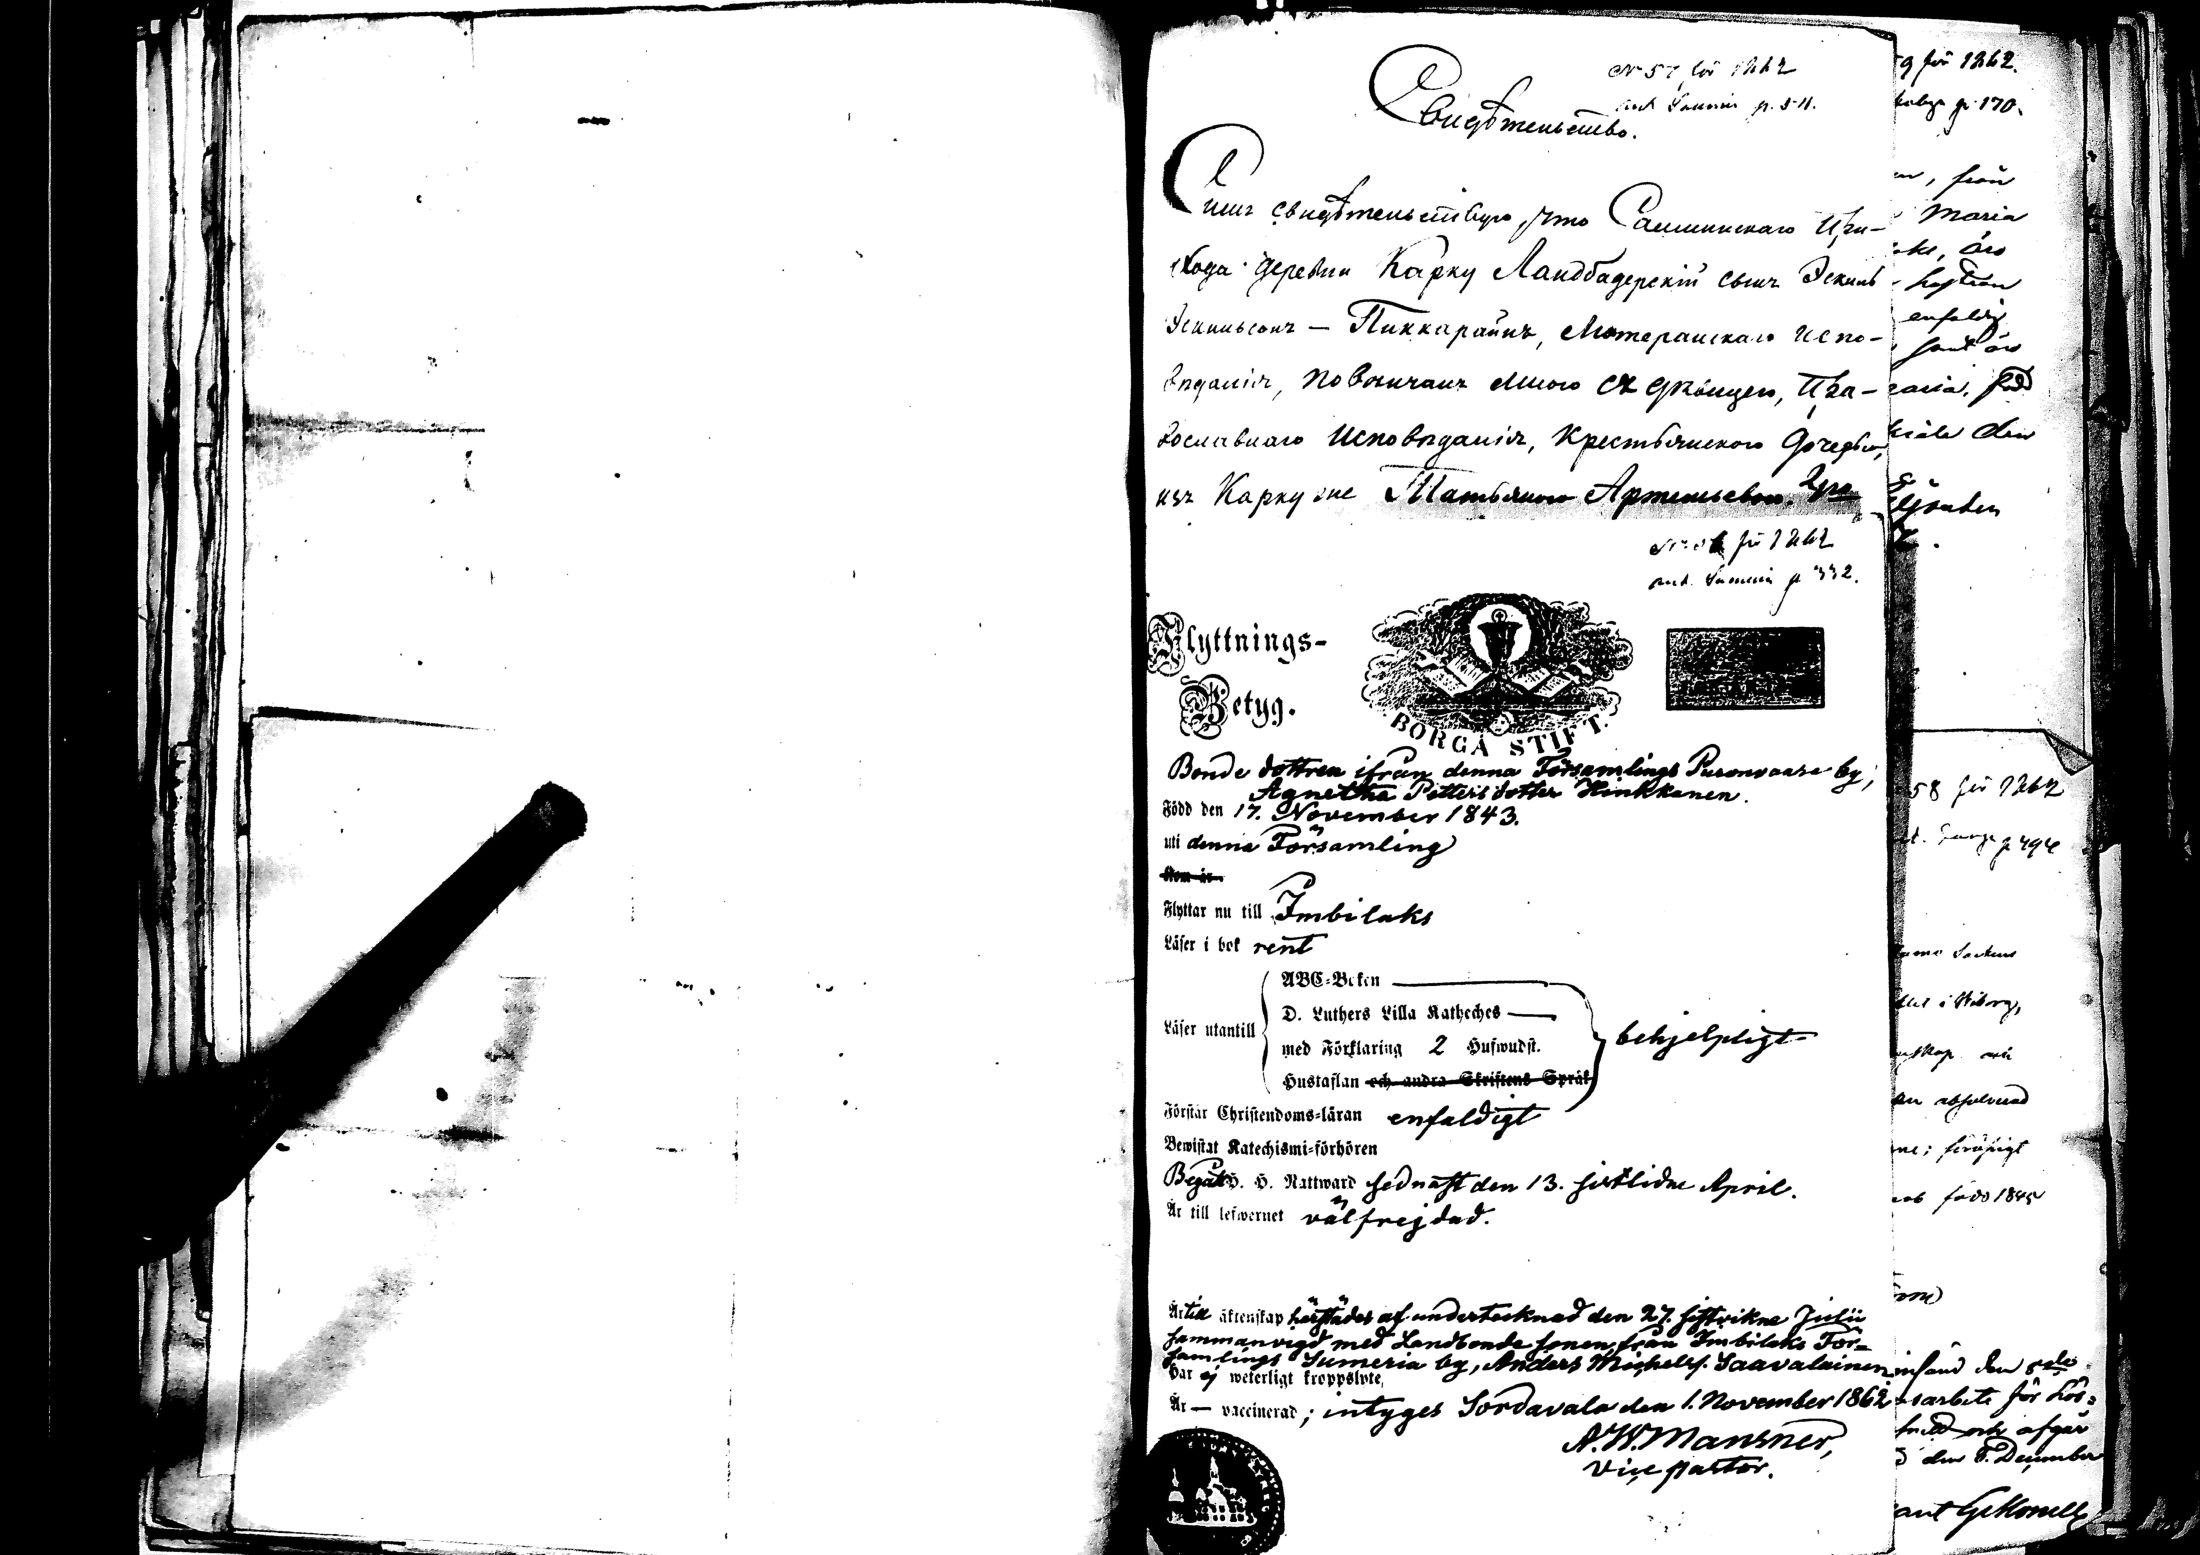 No 57 för 1862
ant. Sumeria p. 511.
Свидѣтельство.
Симъ свидѣтельствую, что Салминскаго При-
хода деревни Карку Ландбадерскій сынъ Эскиль
Эскильсонъ — Пиккарайнъ, Лютеранскаго испо-
вѣданія, повѣнчанъ мною съ дѣвицею, Пра-
вославнаго Исповѣданія, Крестьянскою дочерью,
изъ Карку же Татьяною Артемьевою.
för 1862
ant. Sumeria p 332.
Flyttnings-
Betyg.
BORGÅ STIFT.
Bonde dottren ifrån denna Församlings Pusonvaara by,
Agnetha Pettersdotter Hinkkanen.
Född den 17. November 1843.
uti denna Församling
Som är
Flyttar nu till Imbilaks
Läser i bok rent
ABC-Boken
D. Luthers Lilla Katheches
Läser utantill
med Förklaring 2 Hufwudst.
behjelpligt
Hustaflan och andra Skriftens Språk
Förstår Christendoms-läran enfaldigt
Bewistat Katechismi-förhören
Begått H. H. Nattward sednast den 13. sistlidne April.
Är till lefwernet välfrejdad.
Är till äktenskap härstädes af undertecknad den 27. sistvikne Julii
sammanvigd med Landbonde sonen från Imbilaks För-
samlings Sumeria by, Anders Michelss. Saavalainen
Har ej weterligt kroppslyte,
Är — vaccinerad; intyges Sordavala den 1. November 1862
A.W. Mansner,
Vice pastor.
9 för 1862.
p. 170.
, från
Maria
enfaldig
född
den
58 för 1862
p 494
i Wiborg,
absolverad
född 1845
den 5te
sarbete för
och afgår
den 5. December